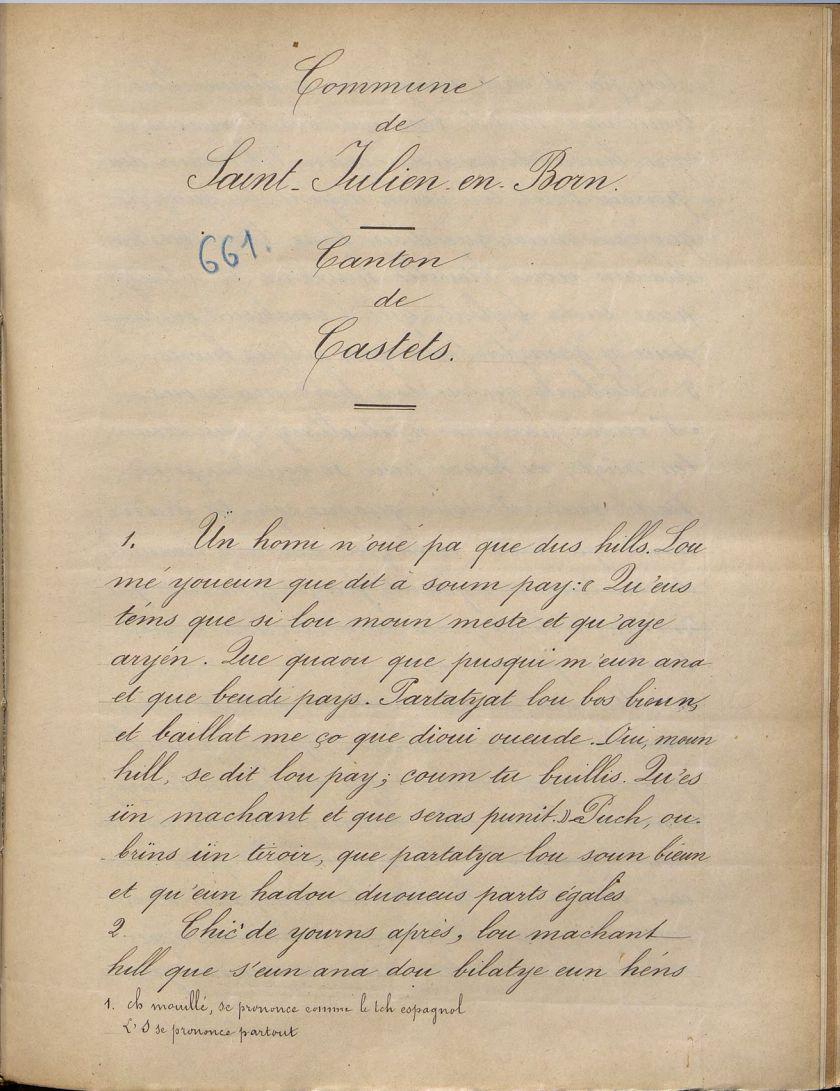 Commune
de
Saint-Julien-en-Born.
661.
Canton
de
Castets.
1. Ün homi n'oué pa que dus hills. Lou
mé youeun que dit à soum pay: « Qu'eus
téms que si lou moun meste et qu'aye
aryén. Que quaou que pusqui m'eun ana
et que beudi pays. Partatyat lou bos bieun,
et baillat me ço que dioui oueude. Oui, moun
hill, se dit lou pay; coum tu buillis. Qu'es
ün machant et que seras punit.» Puch, ou-
brïns ün tiroir, que partatya lou soun bieun
et qu'eun hadou duoueus parts égales
2. Chic' de yourns après, lou machant
hill que s'eun ana dou bilatye eun héns
1. ch mouillé, se prononce comme le tch espagnol
L'S se prononce partout